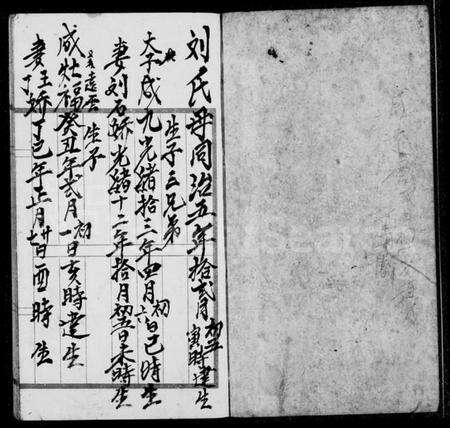 刘氏母同治五年拾弍月初五寅時建生
生子三兄弟
大子成九光緒拾三年四月初六日己時生
妻刘石娇光緒十二年拾月初五日未時生
生子
成灶福癸丑年弍月初一日亥時建生
妻王娇丁巳年正月廿七酉時生